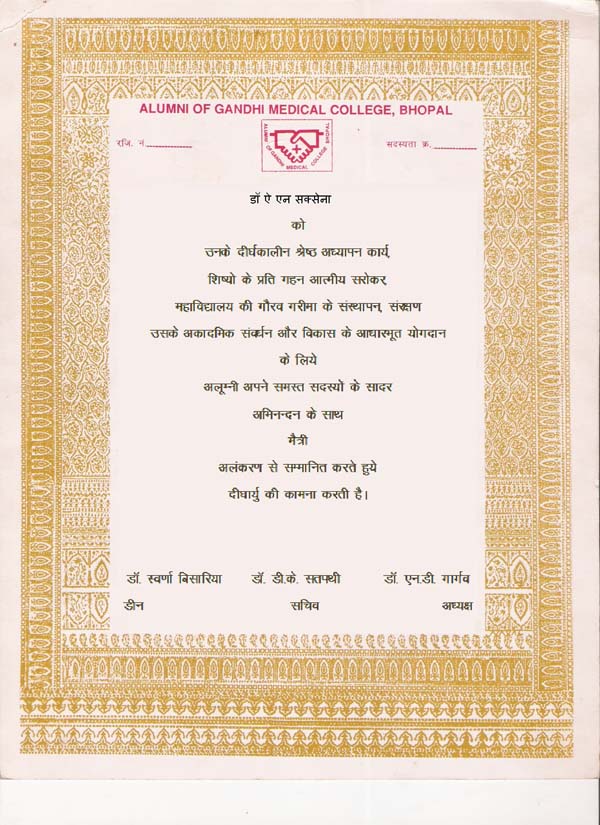 ALUMNI OF GANDHI MEDICAL COLLEGE, BHOPAL
ALUMNI OF GANDHI MEDICAL COLLEGE BHOPAL
रजि. नं. सदस्यता क्र.
डॉ ऐ एन सक्सेना
को
उनके दीर्घकालीन श्रेष्ठ अध्यापन कार्य,
शिष्यो के प्रति गहन आत्मीय सरोकर,
महाविद्यालय की गौरव गरीमा के संस्थापन, संरक्षण
उसके अकादमिक संवर्धन और विकास के आधारमूत योगदान
के लिये
अलूम्नी अपने समस्त सदस्यों के सादर
अमिनन्दन के साथ
मैत्री
अलंकरण से सम्मानित करते हुये
दीघार्यु की कामना करती है।
डॉ. स्वर्णा बिसारिया डॉ. डी.के. सतपथी डॉ. एन.डी. गार्गव
डीन सचिव अध्यक्ष